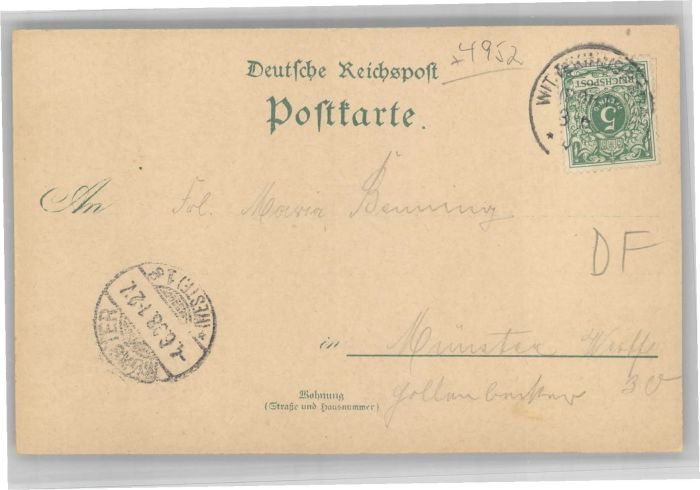 *4952
Deutsche Reichspost
Postkarte.
REICHSPOST
5
An Frl. Maria Benning
DF
(WESTF.) 1 e
4.6.98.1-2.V.
in Münster Westf
Wohnung
(Straße und Hausnummer)
30